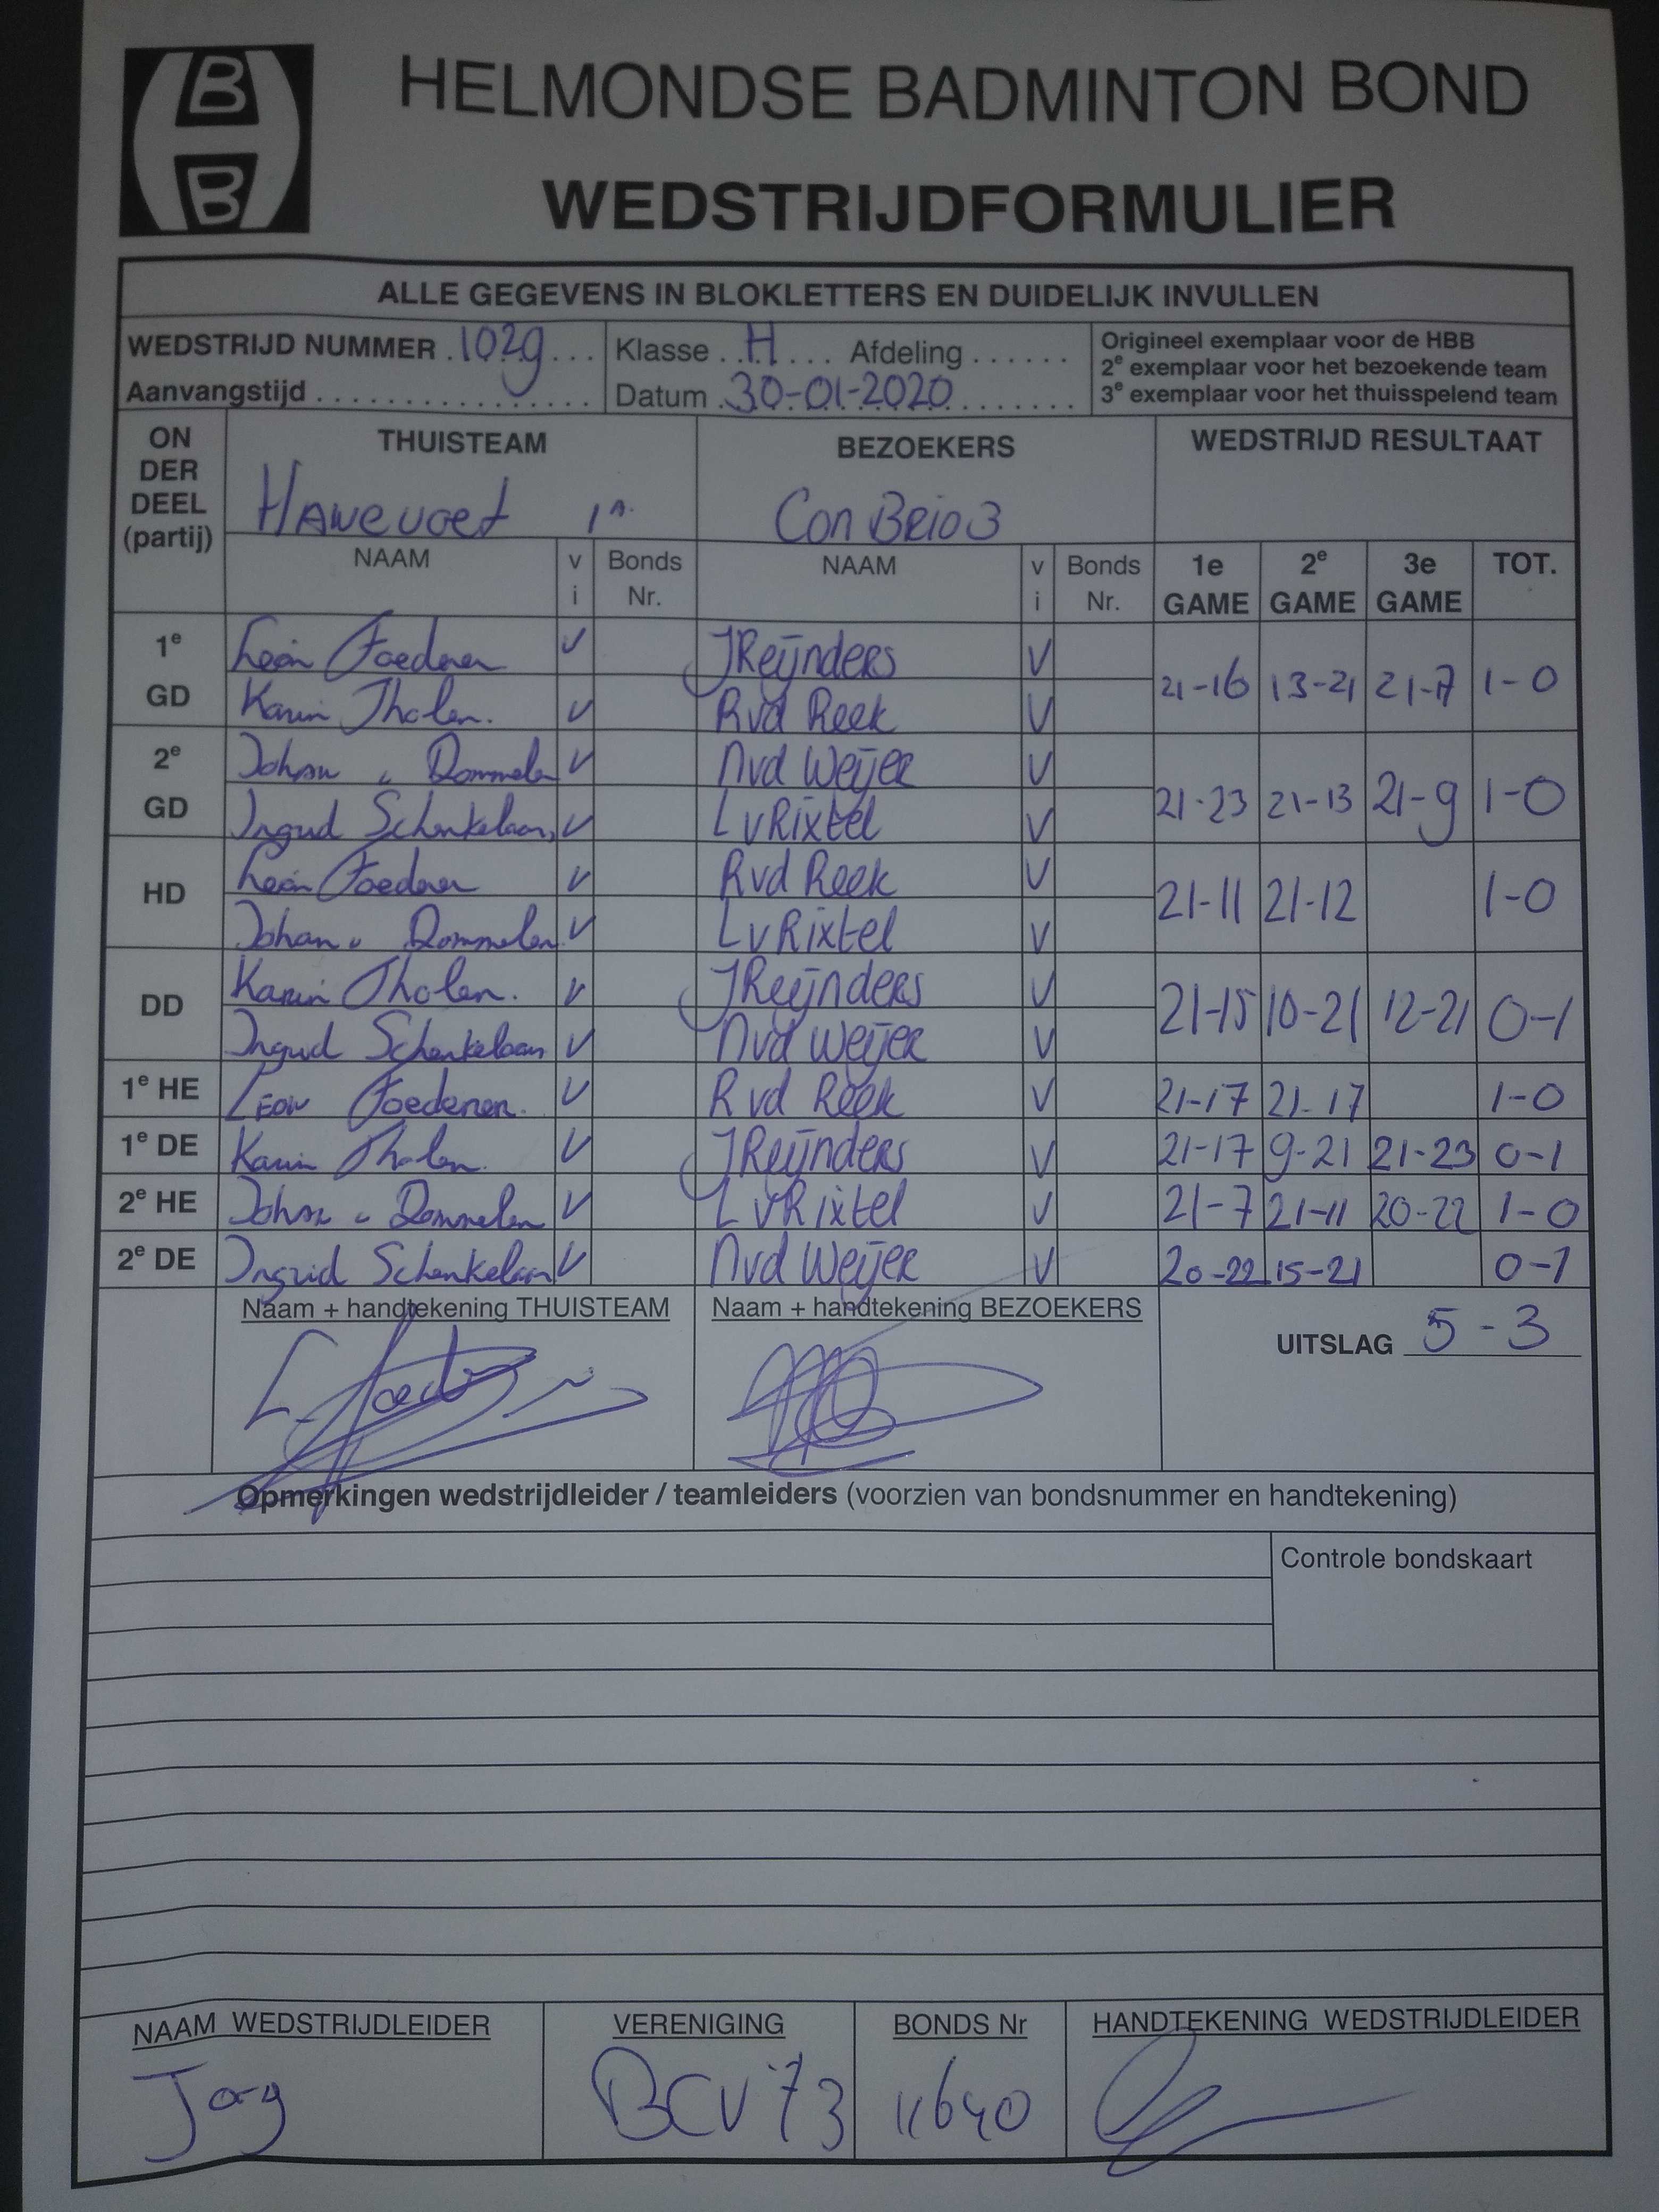 B
B
HELMONDSE BADMINTON BOND
WEDSTRIJDFORMULIER
ALLE GEGEVENS IN BLOKLETTERS EN DUIDELIJK INVULLEN
WEDSTRIJD NUMMER .1029... Klasse ..H.... Afdeling ...... Origineel exemplaar voor de HBB
2e exemplaar voor het bezoekende team
Aanvangstijd .................. Datum .30-01-2020......... 3e exemplaar voor het thuisspelend team
ON DER DEEL (partij) THUISTEAM BEZOEKERS WEDSTRIJD RESULTAAT
Hawevoet 1A. Con Brio 3
NAAM v i Bonds Nr. NAAM v i Bonds Nr. 1e GAME 2e GAME 3e GAME TOT.
1e GD León Foederer V J Reijnders V 21-16 13-21 21-7 1-0
Karin Tholen. V R vd Reek V
2e GD Johan v Dommelen V N vd Weijer V 21-23 21-13 21-9 1-0
Ingrid Schenkelaars V L v Rixtel V
HD León Foederer V R vd Reek V 21-11 21-12 1-0
Johan v Dommelen V L v Rixtel V
DD Karin Tholen. V J Reijnders V 21-15 10-21 12-21 0-1
Ingrid Schenkelaars V N vd Weijer V
1e HE Leon Foederer. V R vd Reek V 21-17 21-17 1-0
1e DE Karin Tholen. V J Reijnders V 21-17 9-21 21-23 0-1
2e HE Johan v Dommelen V L v Rixtel V 21-7 21-11 20-22 1-0
2e DE Ingrid Schenkelaars V N vd Weijer V 20-22 15-21 0-1
Naam + handtekening THUISTEAM Naam + handtekening BEZOEKERS UITSLAG 5-3
Opmerkingen wedstrijdleider / teamleiders (voorzien van bondsnummer en handtekening)
Controle bondskaart
NAAM WEDSTRIJDLEIDER VERENIGING BONDS Nr HANDTEKENING WEDSTRIJDLEIDER
Jorg BCV '73 11640